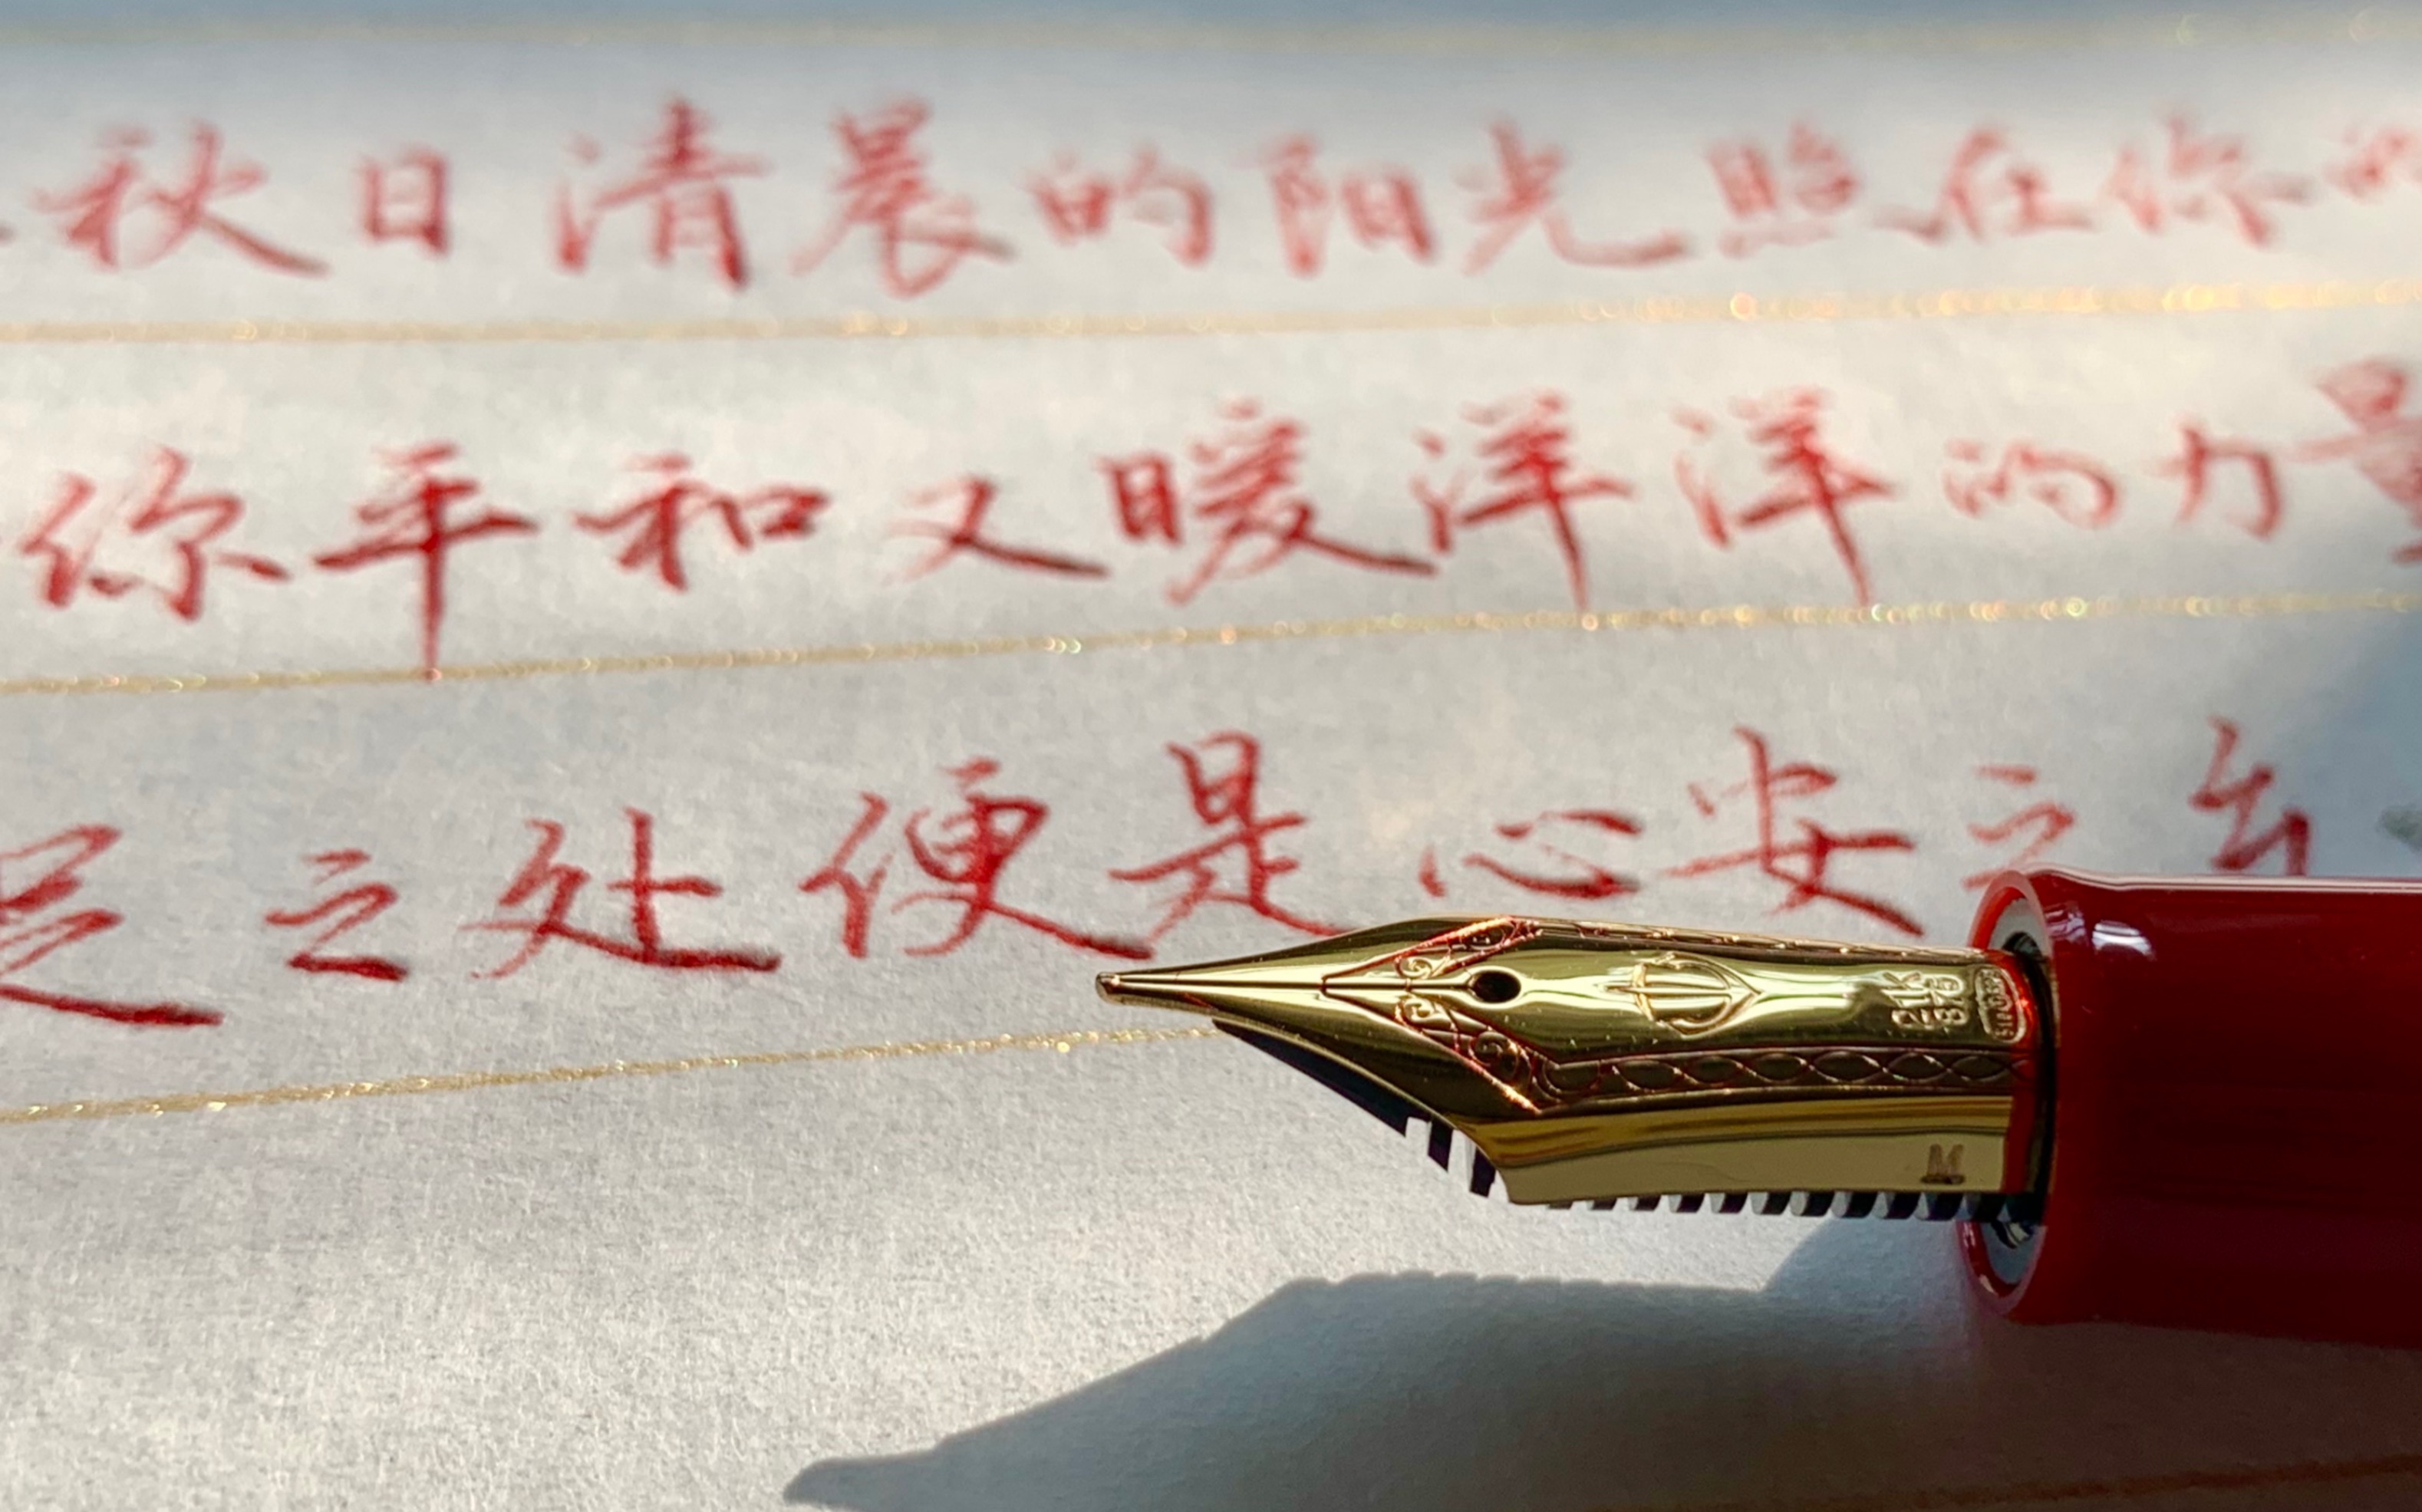 秋日清晨的阳光照在你的
你平和又暖洋洋的力量
足之处便是心安之
21K
875
SAILOR
M